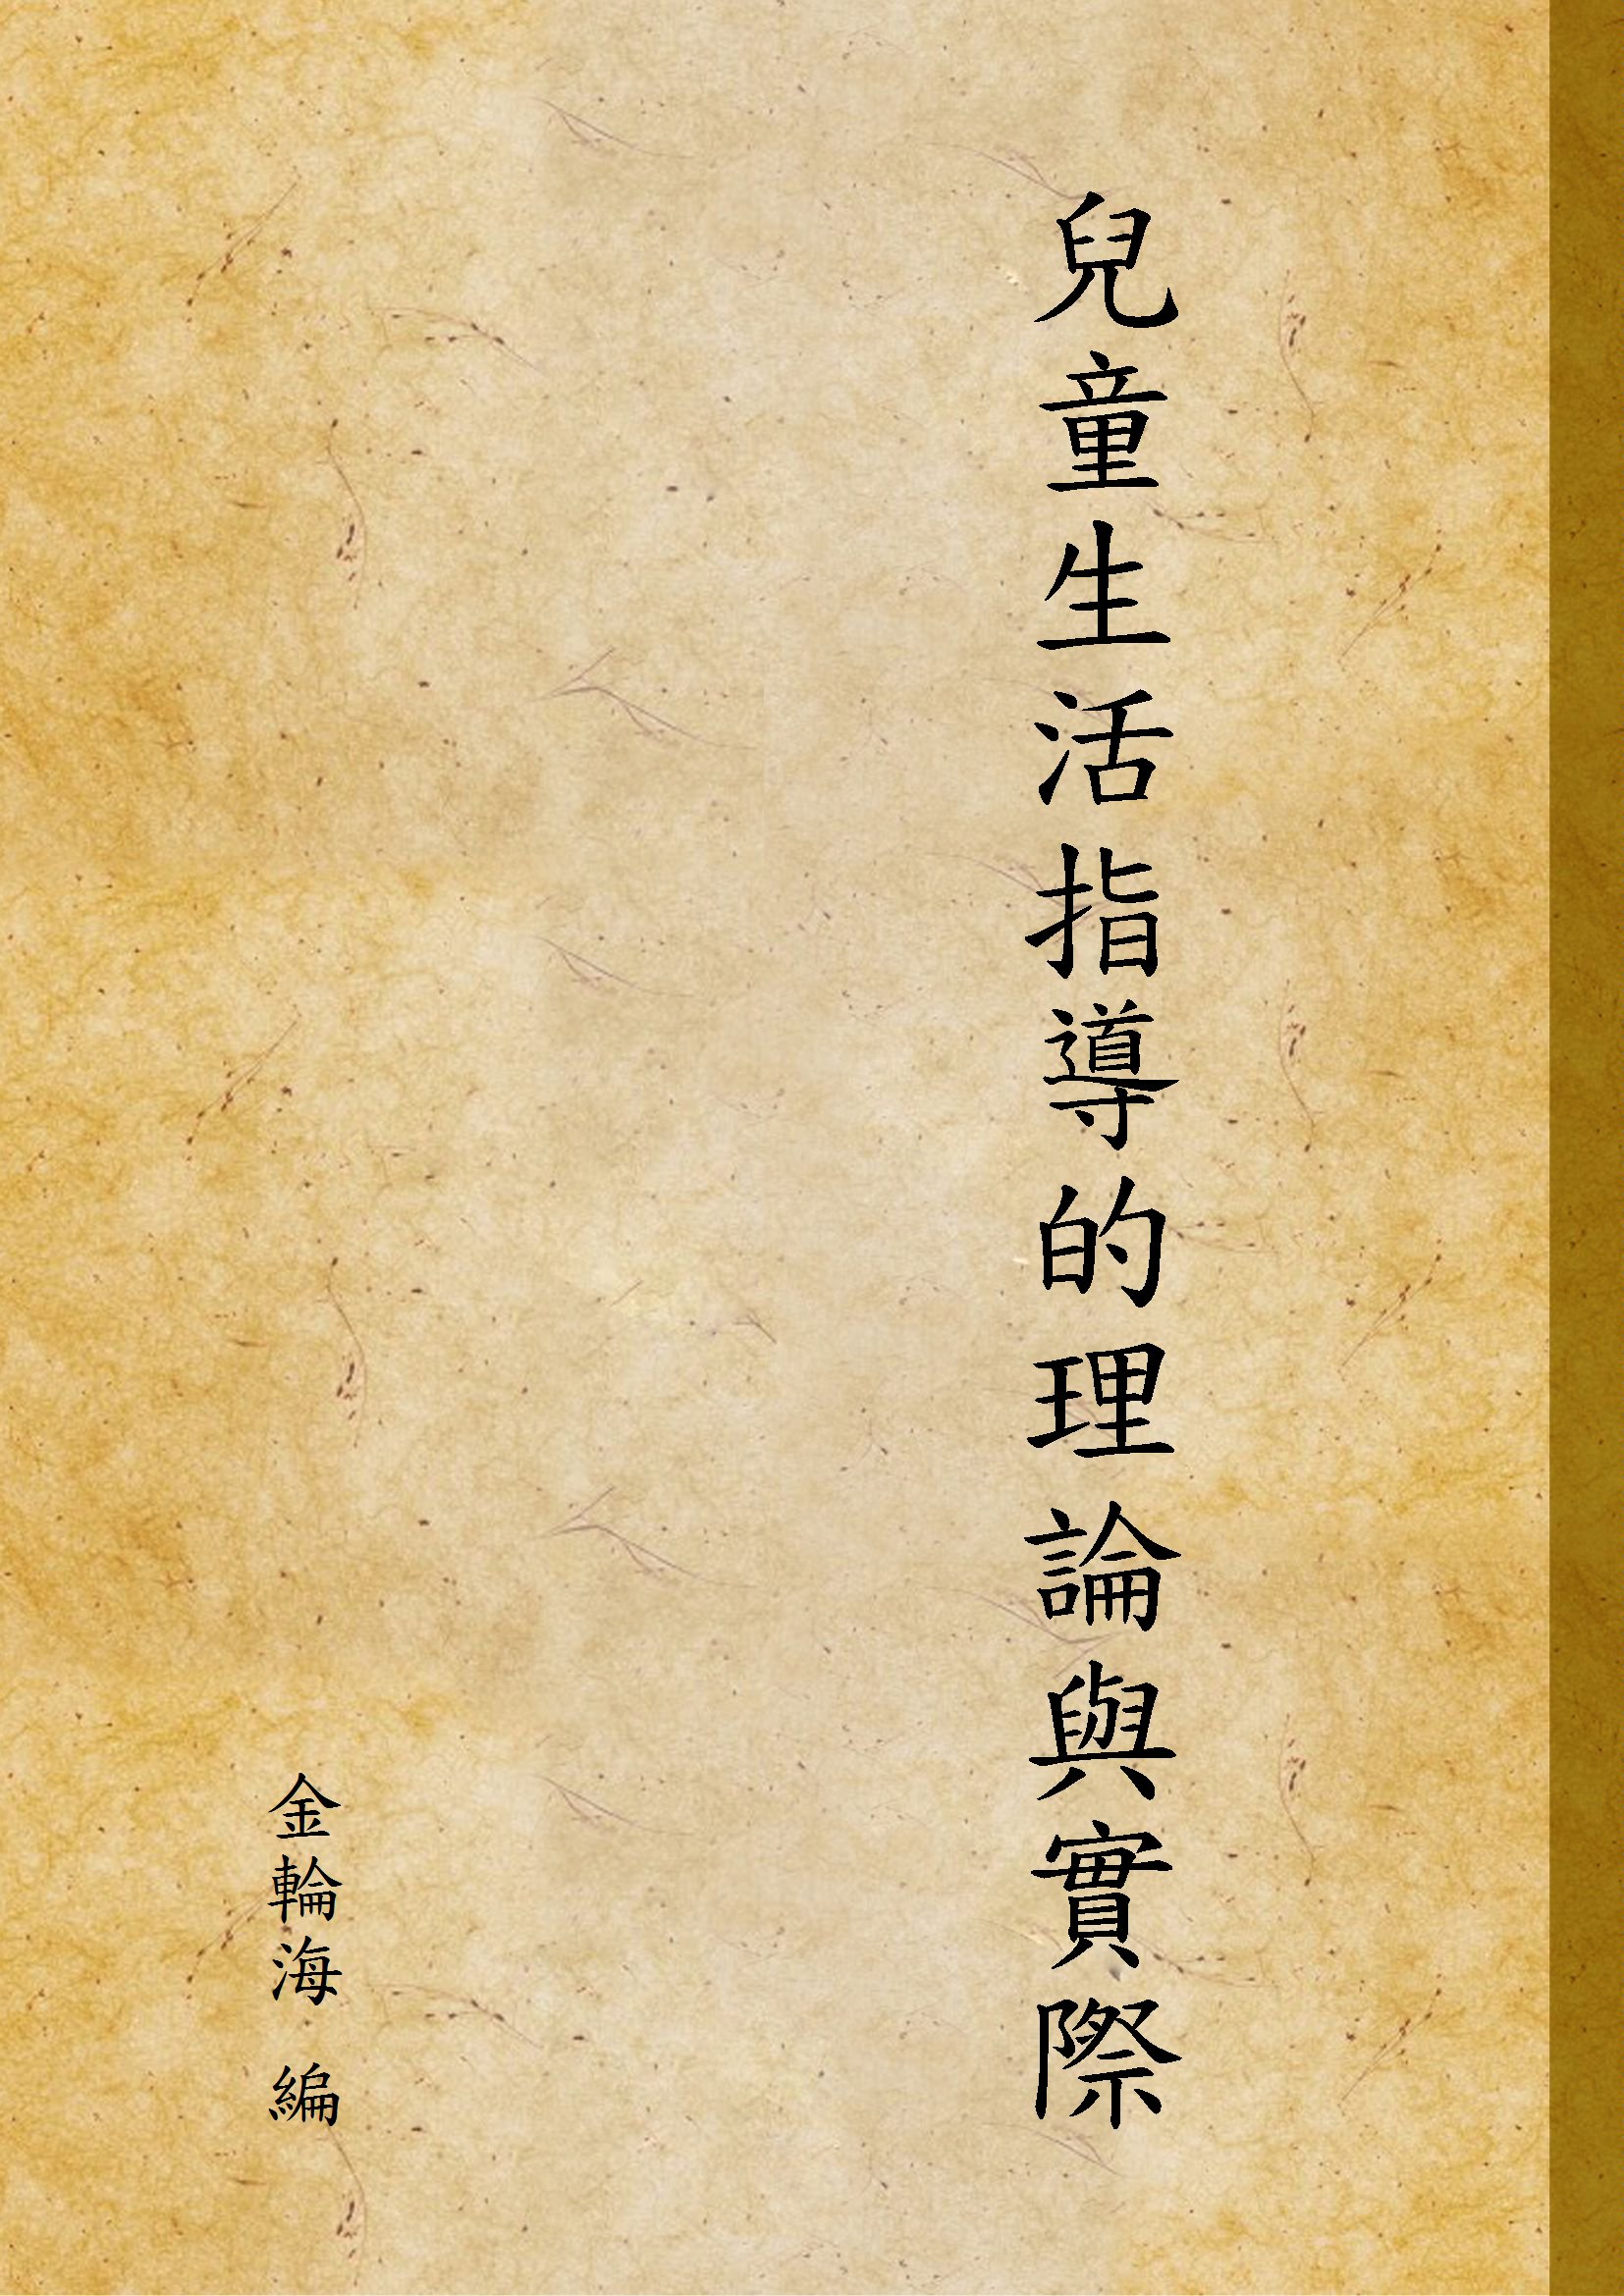 兒童生活指導的理論與實際
金輪海 編